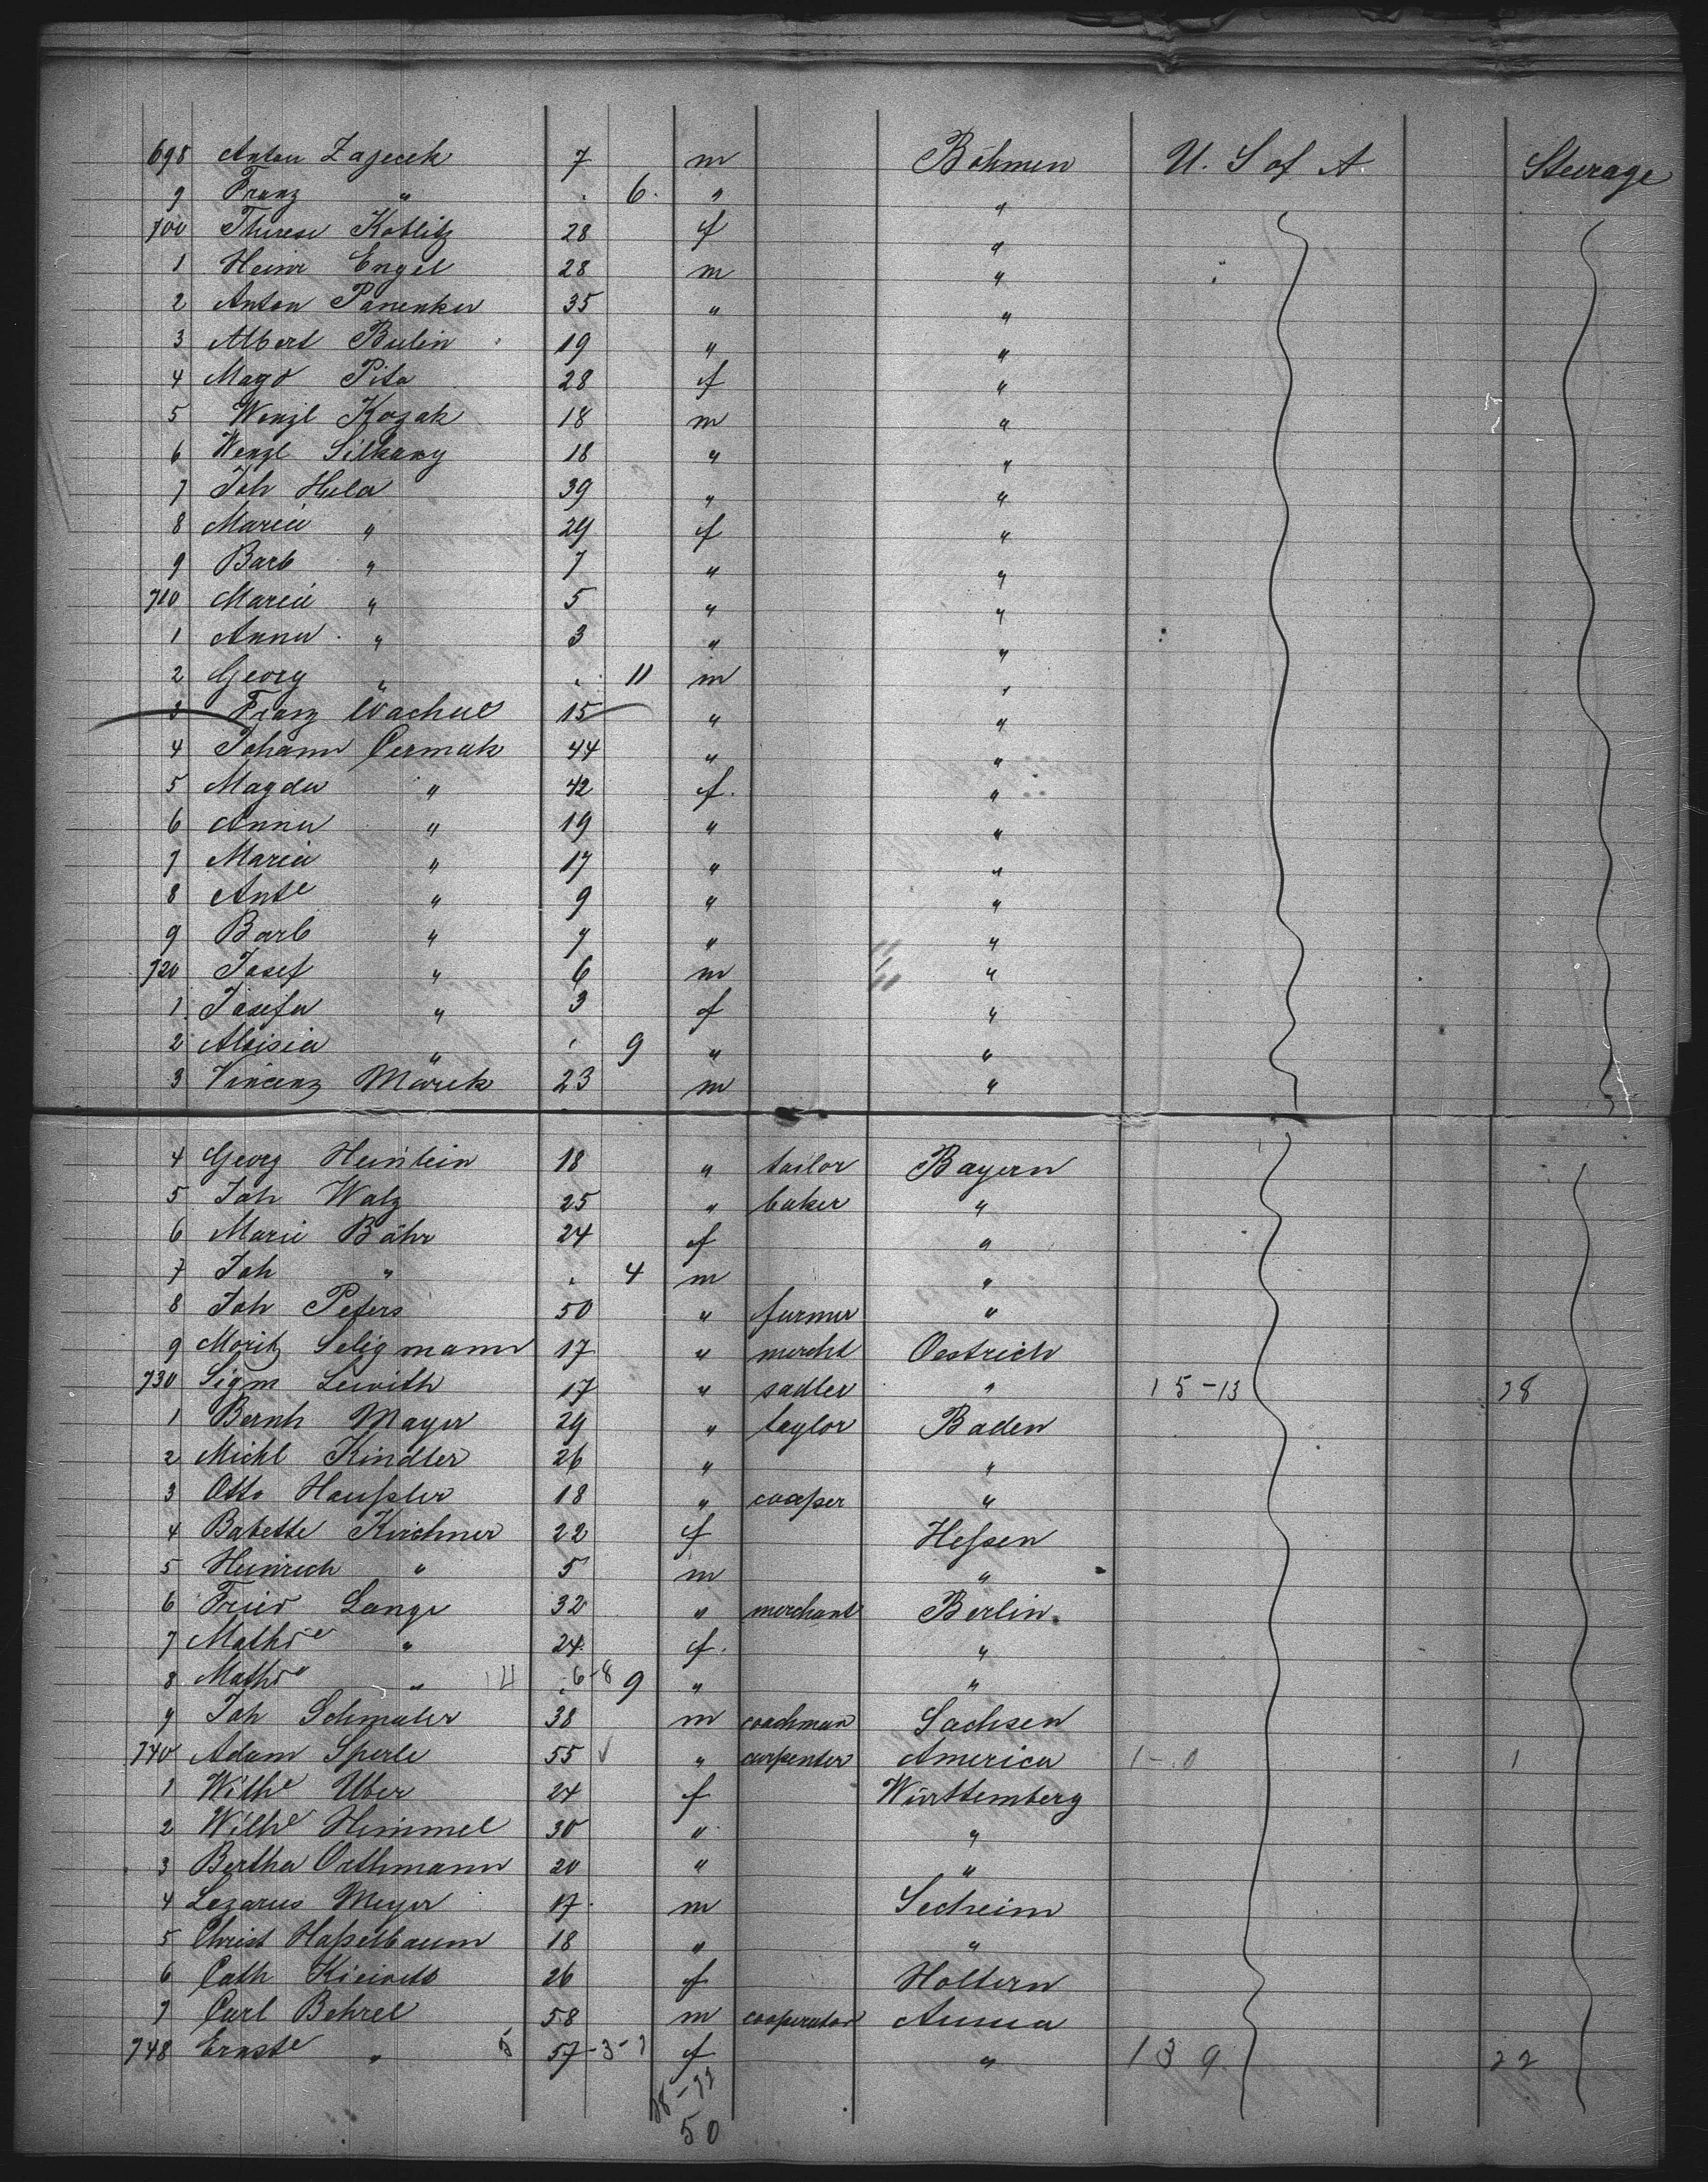 698 Anton Zajicek 7 m Böhmen U. S of A. Steerage
9 Franz " . 6. " "
700 Therese Koblitz 28 f "
1 Heinr Engel 28 m "
2 Anton Panenka 35 " "
3 Albert Bulin 19 " "
4 Magd Pita 28 f "
5 Wenzl Kozak 18 m "
6 Wenzl Silhany 18 " "
7 Joh Hula 39 " "
8 Maria " 29 f "
9 Barb " 7 " "
710 Maria " 5 " "
1 Anna " 3 " "
2 Georg " . 11 m "
3 Franz Wachul 15 " "
4 Johann Cermak 44 " "
5 Magda " 42 f. "
6 Anna " 19 " "
7 Maria " 17 " "
8 Ante " 9 " "
9 Barb " 7 " "
720 Josef " 6 m "
1 Josefa " 3 f "
2 Aloisia " . 9 " "
3 Vincenz Marek 23 m "
4 Georg Heinlein 18 " tailor Bayern
5 Joh Walz 25 " baker "
6 Marie Bähr 24 f "
7 Joh " . 4 m "
8 Joh Peters 50 " farmer "
9 Moritz Seligmann 17 " mercht Oestrich
730 Sigm Lewith 17 " sadler " 15-13 28
1 Bernh Mayer 29 " taylor Baden
2 Michl Kindler 26 " "
3 Otto Haußler 18 " cooper "
4 Babette Kirchner 22 f Heßen
5 Heinrich " 5 m "
6 Fried Lange 32 " merchant Berlin
7 Mathde " 24 f. "
8 Mathde " 14 . 6-8 9 " "
9 Joh Schmaler 38 m coachman Sachsen
740 Adam Sperle 55 " carpenter America 1-0 1
1 Wilhe Uber 24 f Württemberg
2 Wilhe Himmel 30 " "
3 Bertha Orthmann 20 " "
4 Lezarus Meyer 17 m Secheim
5 Christ Haßelbaum 18 " "
6 Cath 26 f Holtern
7 Carl Behrel 58 m cooperator
748 Ernste " 5 57-3-7 f " 139 22
28-22
50